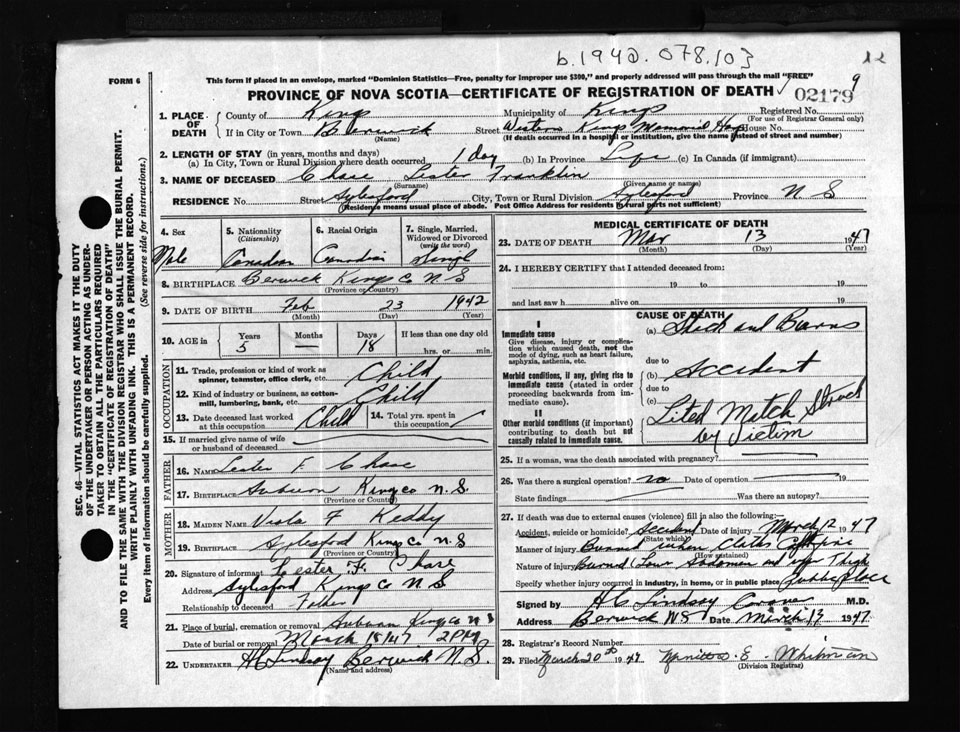 b.1942.078.103
12
FORM 6
This form if placed in an envelope, marked "Dominion Statistics—Free, penalty for improper use $300," and properly addressed will pass through the mail "FREE"
9
PROVINCE OF NOVA SCOTIA—CERTIFICATE OF REGISTRATION OF DEATH 02179
1. PLACE OF DEATH County of Kings Municipality of Kings Registered No.
(For use of Registrar General only)
If in City or Town Berwick Street Western Kings Memorial Hosp House No.
(Name) (If death occurred in a hospital or institution, give the name instead of street and number)
2. LENGTH OF STAY (in years, months and days)
(a) In City, Town or Rural Division where death occurred 1 day (b) In Province Life (c) In Canada (if immigrant)
3. NAME OF DECEASED Chase Lester Franklin
(Surname) (Given name or names)
RESIDENCE No. Street Aylesford City, Town or Rural Division Aylesford Province N. S
(Residence means usual place of abode. Post Office Address for residents in rural parts not sufficient)
4. Sex Male
5. Nationality (Citizenship) Canadian
6. Racial Origin Canadian
7. Single, Married, Widowed or Divorced (write the word) Single
8. BIRTHPLACE Berwick Kings Co N. S
(Province or Country)
9. DATE OF BIRTH Feb 23 1942
(Month) (Day) (Year)
10. AGE in Years 5 Months — Days 18 If less than one day
hrs. or min.
OCCUPATION
11. Trade, profession or kind of work as spinner, teamster, office clerk, etc. Child
12. Kind of industry or business, as cotton-mill, lumbering, bank, etc. Child
13. Date deceased last worked at this occupation Child 14. Total yrs. spent in this occupation
15. If married give name of wife or husband of deceased
FATHER
16. NAME Lester F Chase
17. BIRTHPLACE Auburn Kings co N. S.
(Province or Country)
MOTHER
18. MAIDEN NAME Viola F Keddy
19. BIRTHPLACE Aylesford Kings Co N S
(Province or Country)
20. Signature of informant Lester F. Chase
Address Aylesford Kings Co N S
Relationship to deceased Father
21. Place of burial, cremation or removal Auburn Kings co N S
Date of burial or removal March 15/47 2 PM
22. UNDERTAKER H C Lindsay Berwick N. S.
(Name and address)
MEDICAL CERTIFICATE OF DEATH
23. DATE OF DEATH Mar 13 1947
(Month) (Day) (Year)
24. I HEREBY CERTIFY that I attended deceased from:
19 to 19
and last saw h alive on 19
CAUSE OF DEATH
I
Immediate cause
Give disease, injury or complication which caused death, not the mode of dying, such as heart failure, asphyxia, asthenia, etc.
(a) Shock and Burns
due to
Morbid conditions, if any, giving rise to immediate cause (stated in order proceeding backwards from immediate cause).
(b) Accident
due to
II
Other morbid conditions (if important) contributing to death but not causally related to immediate cause.
(c) Lited Match Struck by Victim
25. If a woman, was the death associated with pregnancy?
26. Was there a surgical operation? no Date of operation 19
State findings Was there an autopsy?
27. If death was due to external causes (violence) fill in also the following:—
Accident, suicide or homicide? Accident Date of injury March 12 1947
(State which)
Manner of injury Burned when clothes Caught fire
(How sustained)
Nature of injury Burned Lower Abdomen and upper Thigh
Specify whether injury occurred in industry, in home, or in public place Public place
Signed by H C Lindsay Coroner M.D.
Address Berwick NS Date March 17 1947
28. Registrar's Record Number
29. Filed March 20 1947 E. Whitman
(Division Registrar)
SEC. 46—VITAL STATISTICS ACT MAKES IT THE DUTY
OF THE UNDERTAKER OR PERSON ACTING AS UNDER-
TAKER TO OBTAIN ALL THE PARTICULARS REQUIRED
IN THE "CERTIFICATE OF REGISTRATION OF DEATH"
AND TO FILE THE SAME WITH THE DIVISION REGISTRAR WHO SHALL ISSUE THE BURIAL PERMIT.
WRITE PLAINLY WITH UNFADING INK. THIS IS A PERMANENT RECORD.
Every item of information should be carefully supplied. (See reverse side for instructions.)